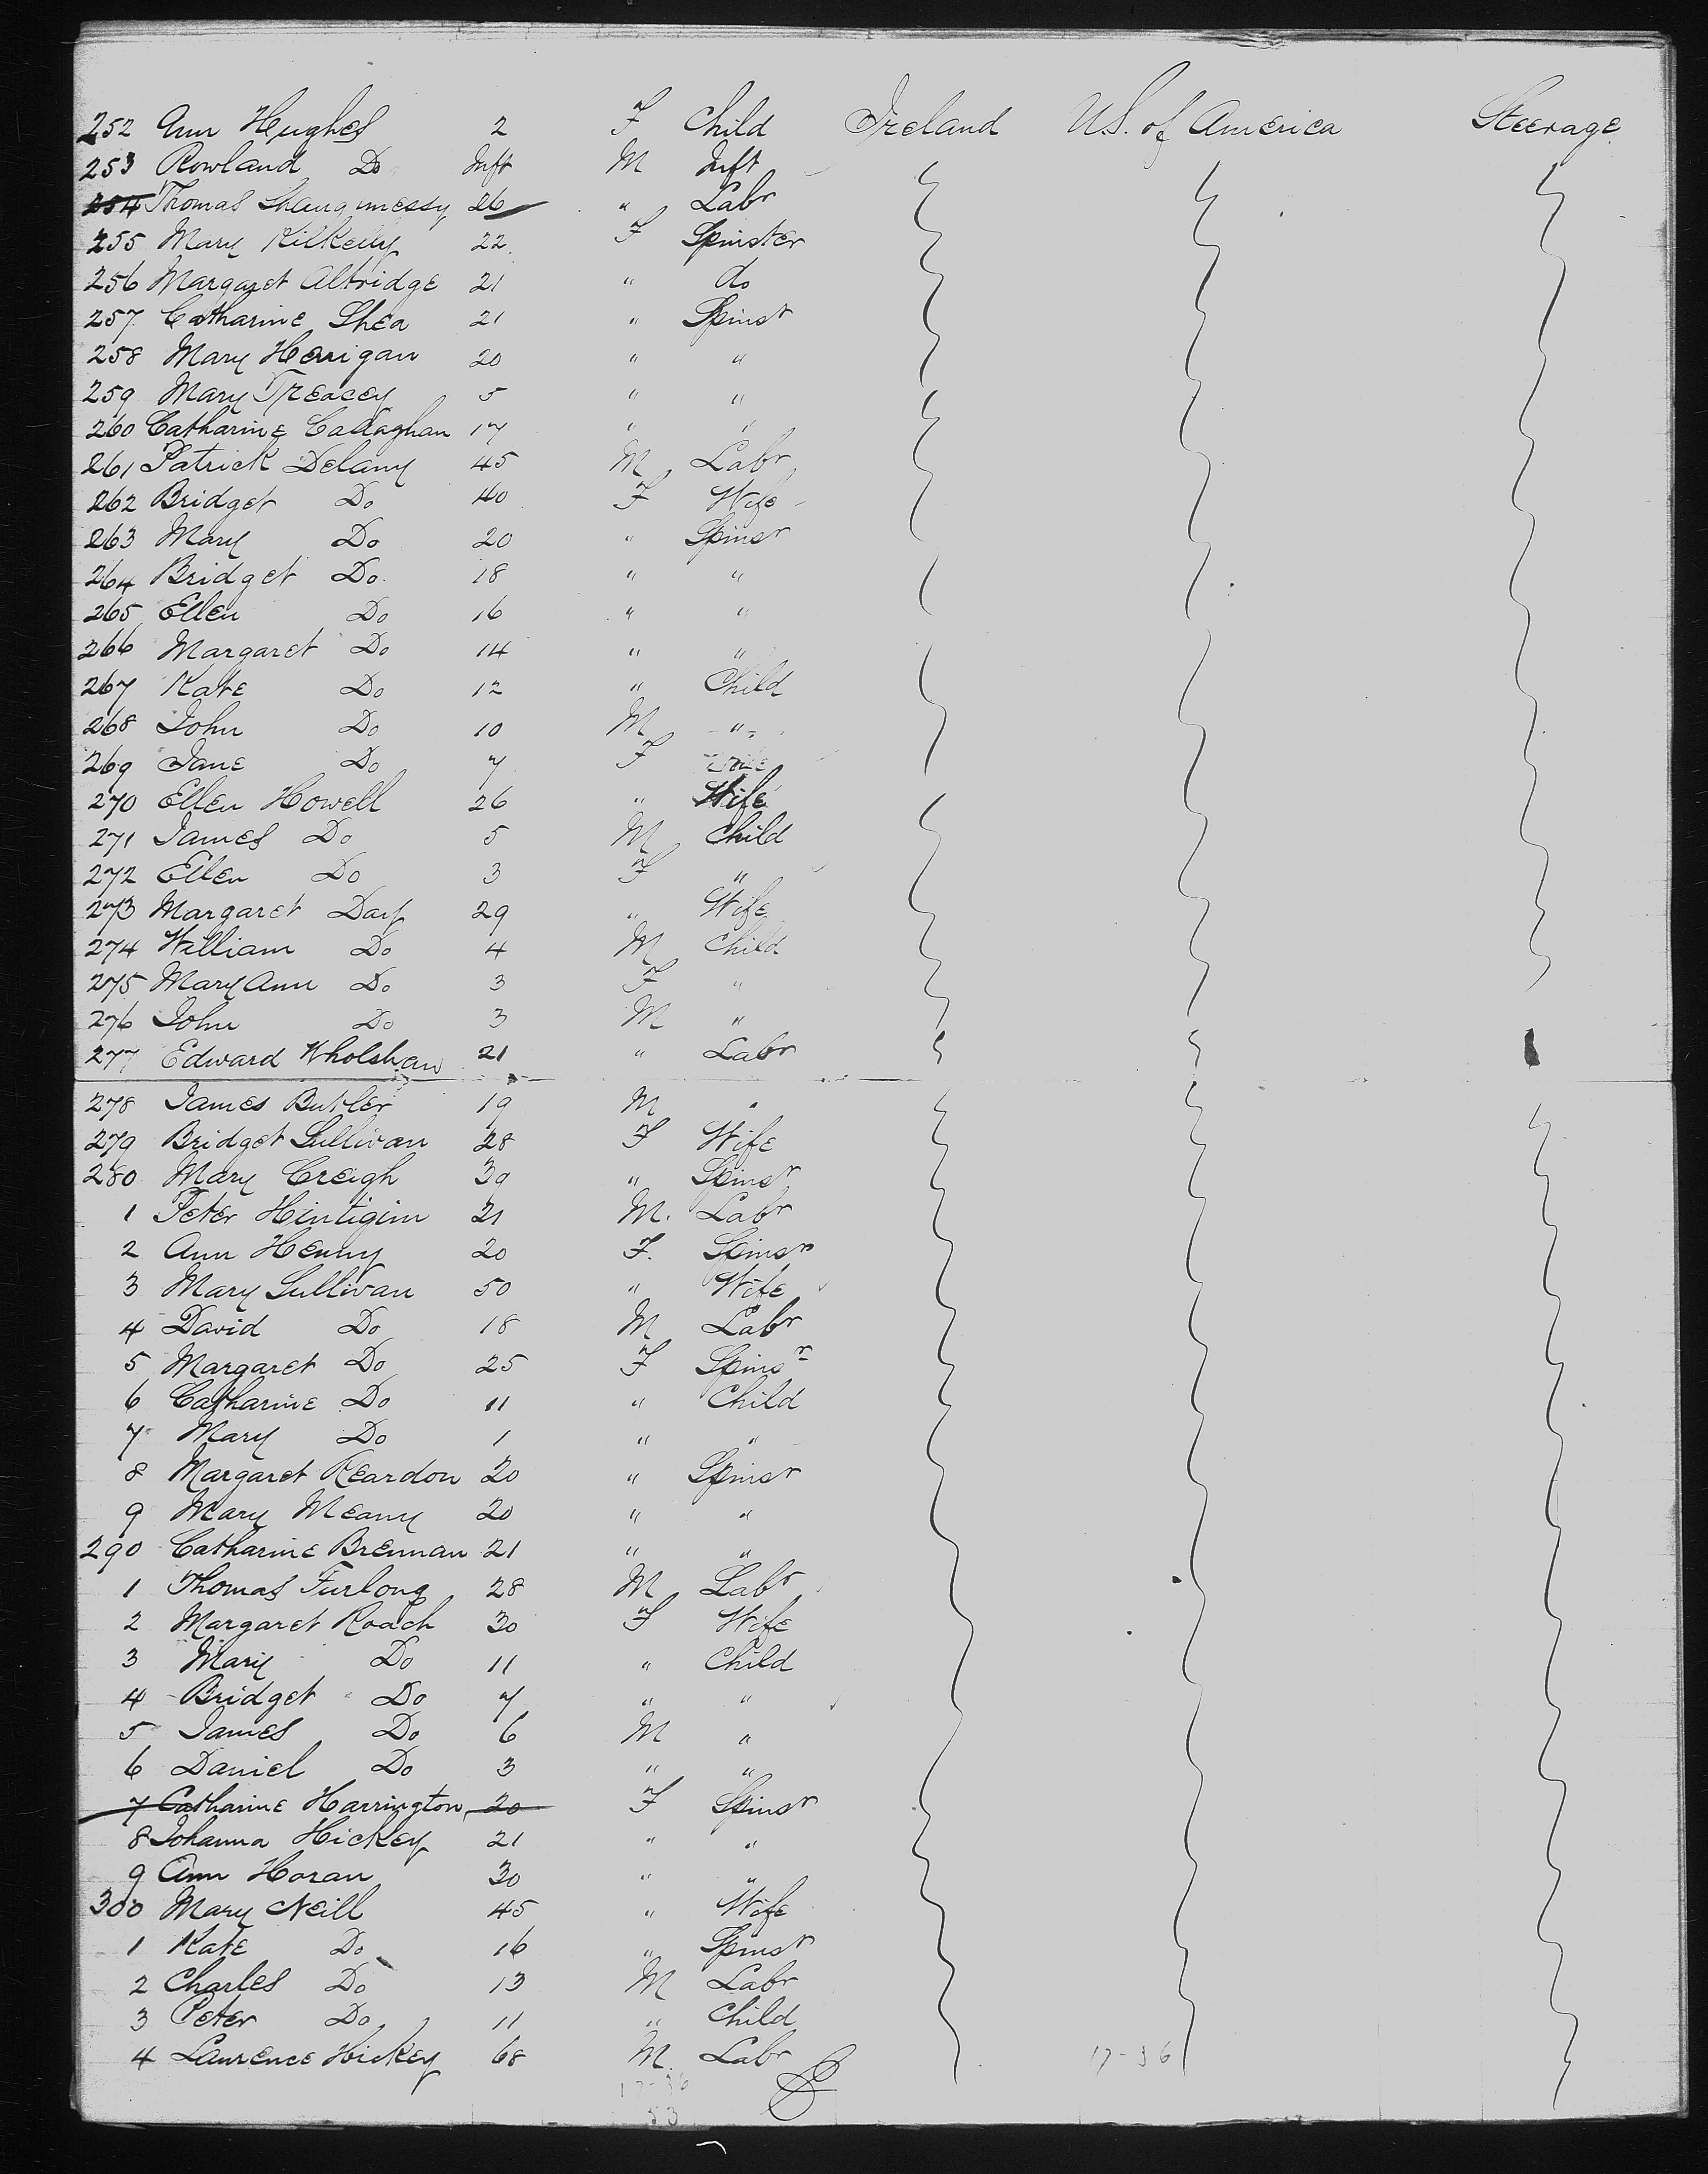 252 Ann Hughes 2 F Child Ireland U.S. of America Steerage
253 Rowland Do Inft M Inft
254 Thomas Shaugnnessy 26 " Labr
255 Mary Kilkelly 22 F Spinster
256 Margaret Altridge 21 " do
257 Catharine Shea 21 " Spinst
258 Mary Horrigan 20 " "
259 Mary Treacey 5 " "
260 Catharine Callaghan 17 " "
261 Patrick Delany 45 M Labr
262 Bridget Do 40 F Wife
263 Mary Do 20 " Spinsr
264 Bridget Do 18 " "
265 Ellen Do 16 " "
266 Margaret Do 14 " "
267 Kate Do 12 " Child
268 John Do 10 M "
269 Jane Do 7 F
270 Ellen Howell 26 " Wife
271 James Do 5 M Child
272 Ellen Do 3 F "
273 Margaret Day 29 " Wife
274 William Do 4 M Child
275 Mary Ann Do 3 F "
276 John Do 3 M "
277 Edward Wholshan 21 " Labr
278 James Butler 19 M "
279 Bridget Sullivan 28 F Wife
280 Mary Creigh 39 " Spinsr
1 Peter Hintigim 21 M. Labr
2 Ann Henny 20 F. Spinsr
3 Mary Sullivan 50 " Wife
4 David Do 18 M Labr
5 Margaret Do 25 F Spinsr
6 Catharine Do 11 " Child
7 Mary Do 1 " "
8 Margaret Reardon 20 " Spinsr
9 Mary Meany 20 " "
290 Catharine Brennan 21 " "
1 Thomas Furlong 28 M Labr
2 Margaret Roach 30 F Wife
3 Mary Do 11 " Child
4 Bridget Do 7 " "
5 James Do 6 M "
6 Daniel Do 3 " "
7 Catharine Harrington 20 F Spinsr
8 Johanna Hickey 21 " "
9 Ann Horan 30 " "
300 Mary Neill 45 " Wife
1 Kate Do 16 " Spinsr
2 Charles Do 13 M Labr
3 Peter Do 11 " Child
4 Laurence Hickey 68 M. Labr 17-36
17-36
53